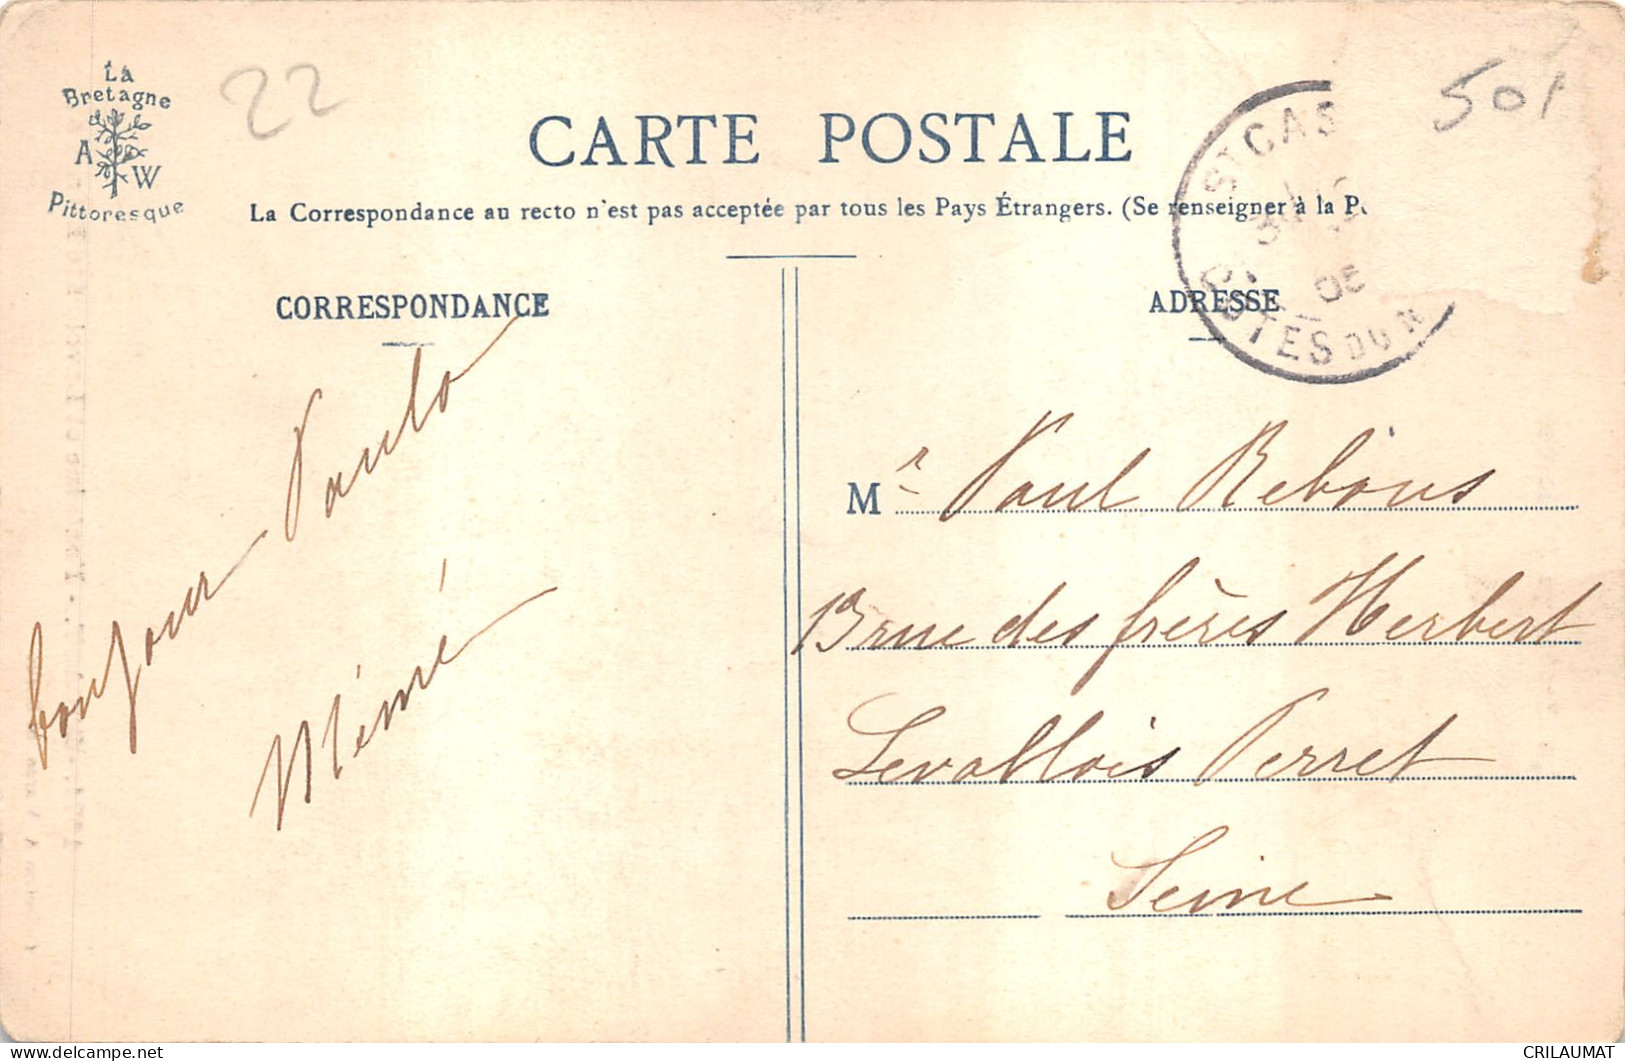 La
Bretagne
A W
Pittoresque
22
501
CARTE POSTALE
La Correspondance au recto n'est pas acceptée par tous les Pays Étrangers. (Se renseigner à la P
ST CAS
05
CÔTES DU N
CORRESPONDANCE
ADRESSE
bonjour Paulo
Mémé
Mr Paul Rebous
13 rue des frères Herbert
Levallois Perret
Seine
CRILAUMAT